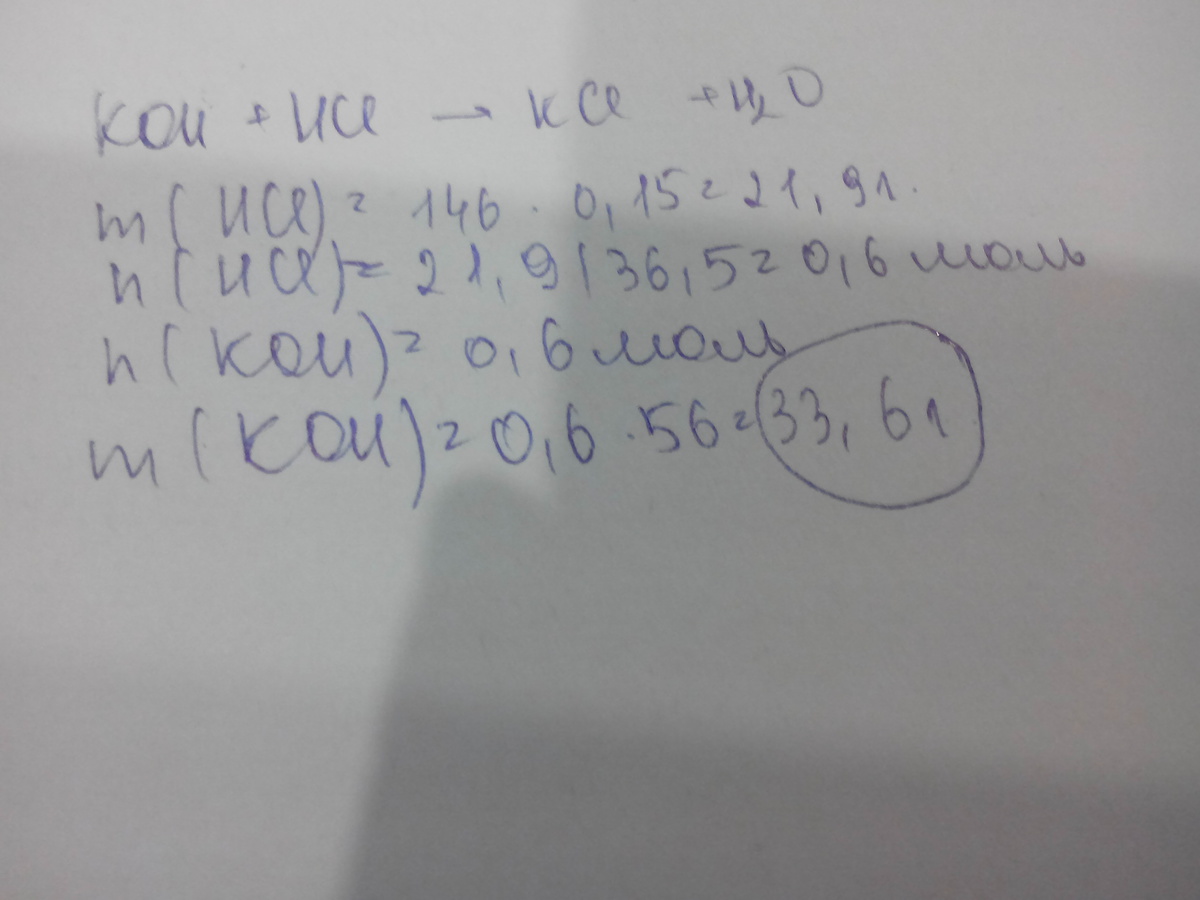 KOH + HCl → KCl + H₂O
m(HCl) = 146 · 0,15 = 21,9г.
n(HCl) = 21,9/36,5 = 0,6 моль
n(KOH) = 0,6 моль
m(KOH) = 0,6 · 56 = 33,6г